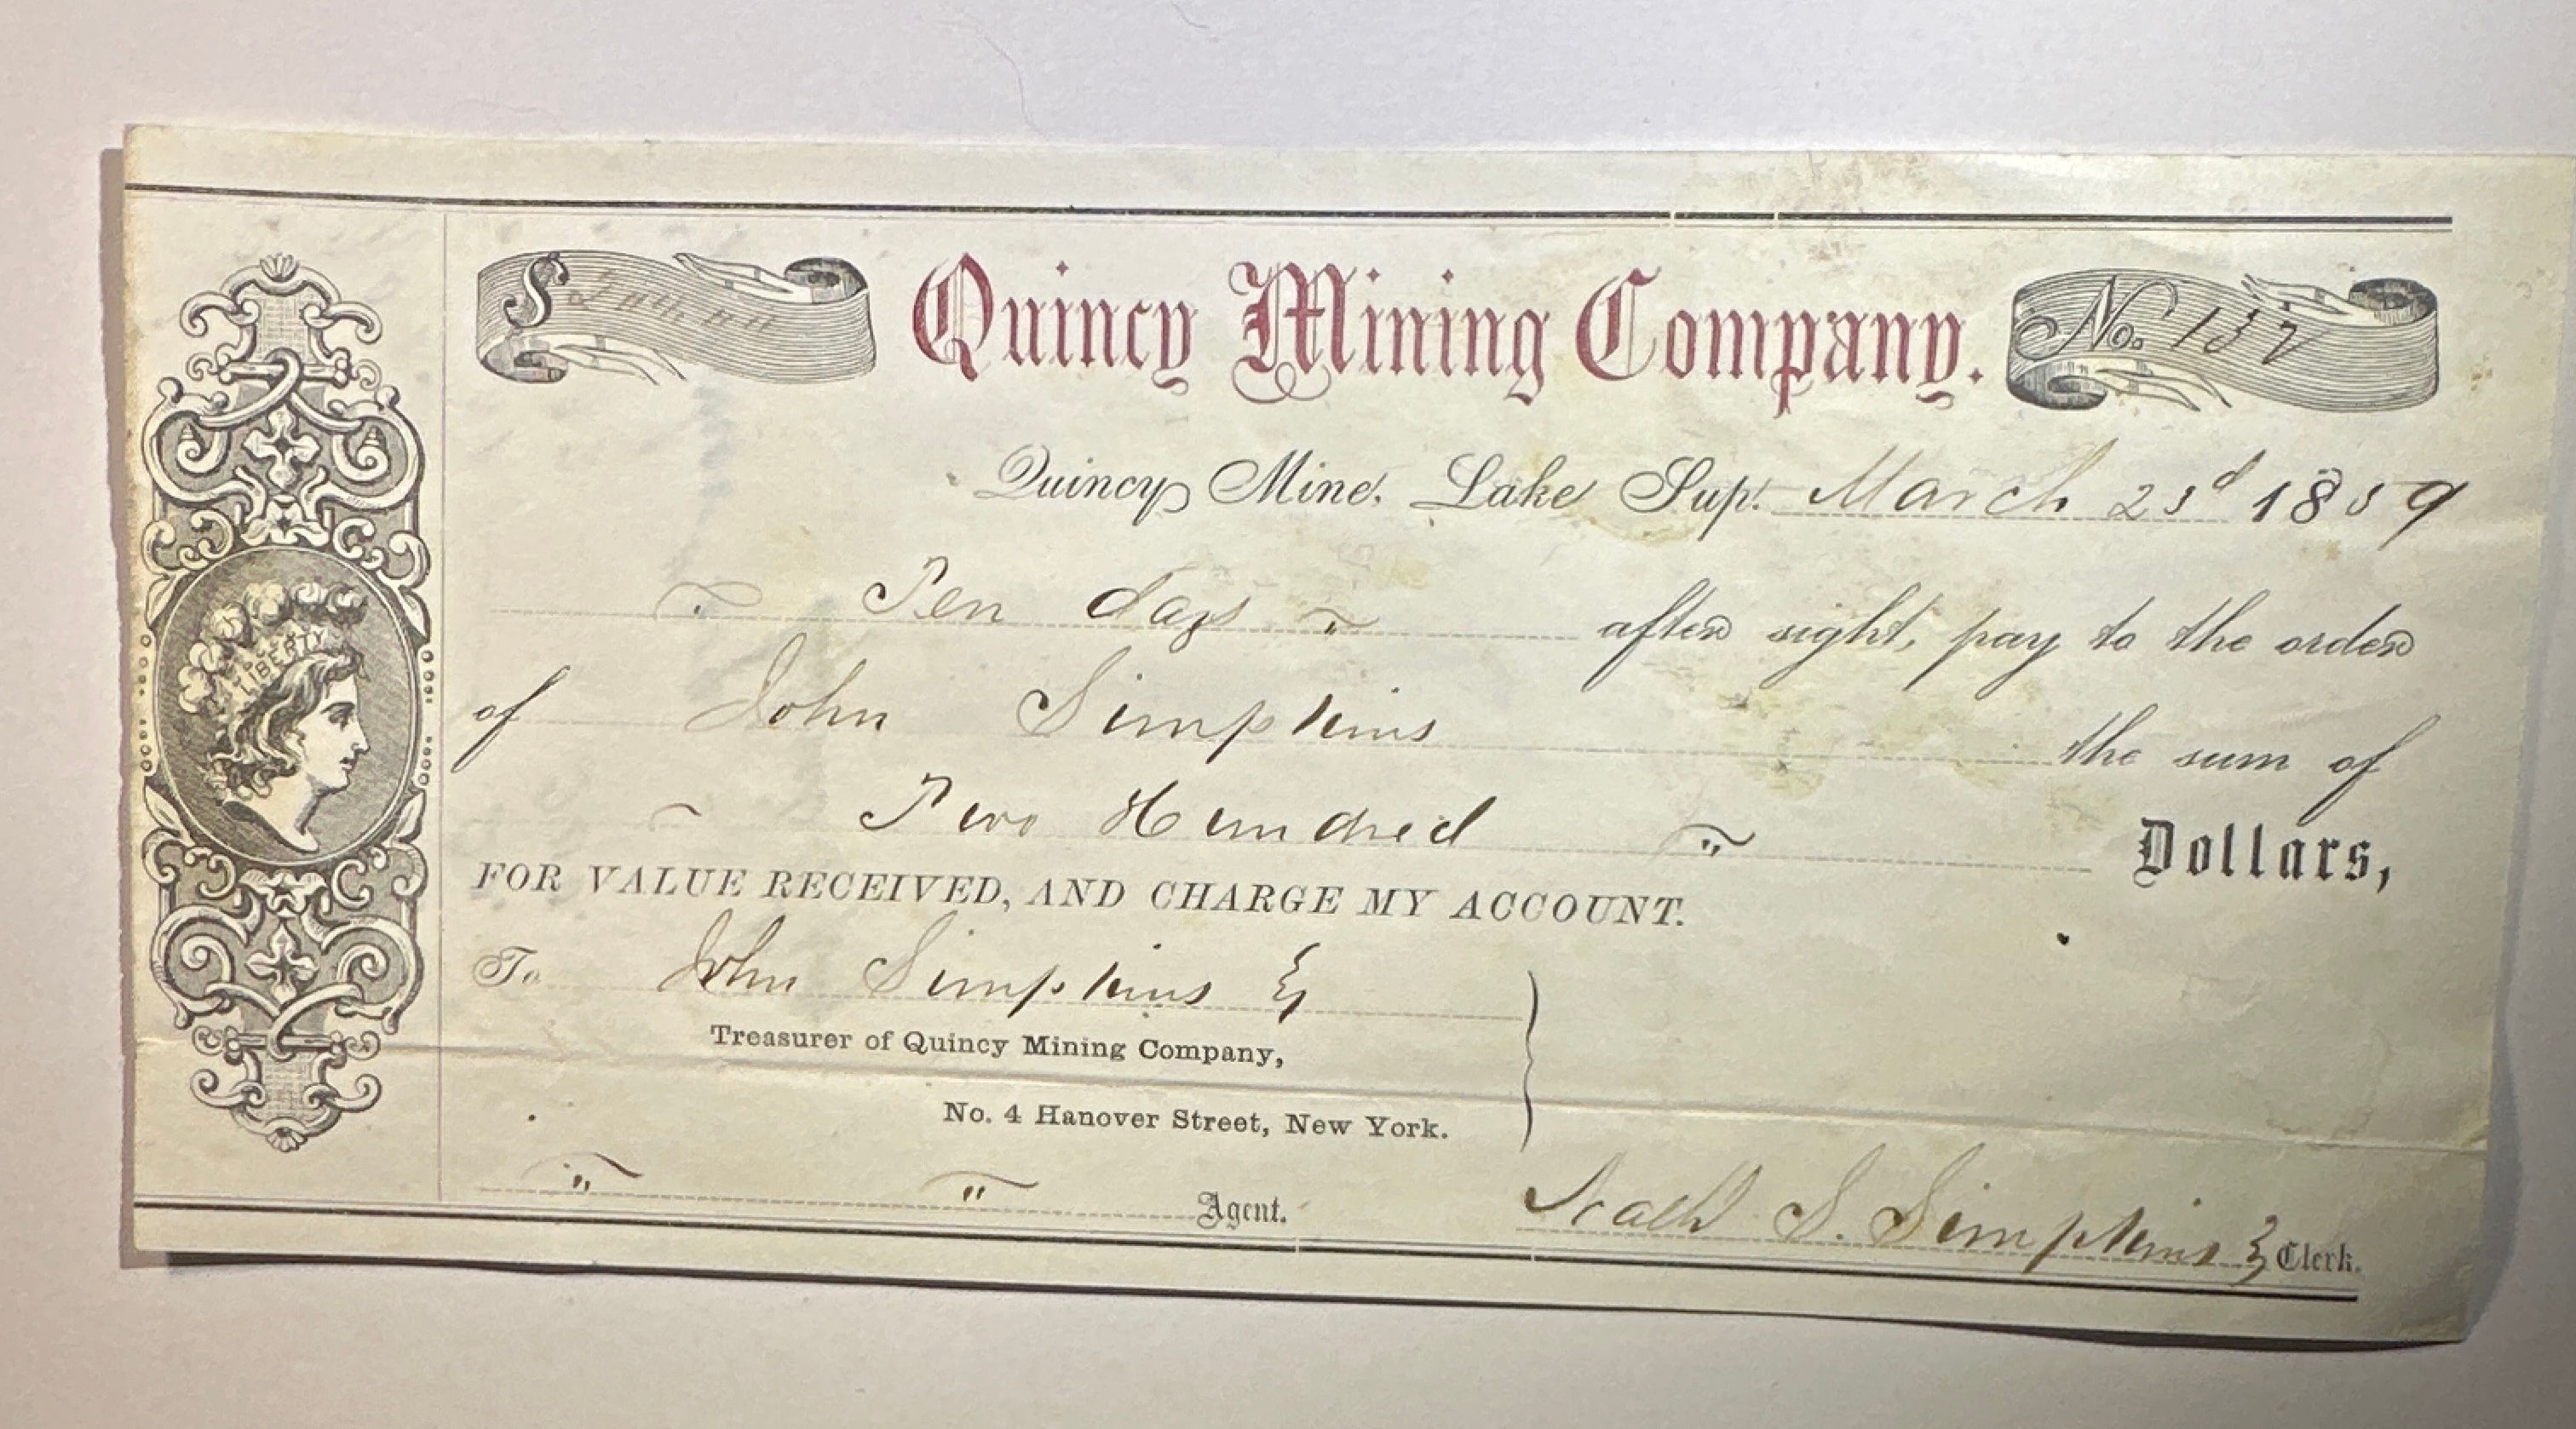 $ 200.00
Quincy Mining Company.
No. 132
Quincy Mine, Lake Sup. March 23d 1859
Ten days after sight, pay to the order
of John Simpkins the sum of
Two Hundred Dollars,
FOR VALUE RECEIVED, AND CHARGE MY ACCOUNT.
To John Simpkins
Treasurer of Quincy Mining Company,
No. 4 Hanover Street, New York.
Agent. S. Simpkins Clerk.
LIBERTY